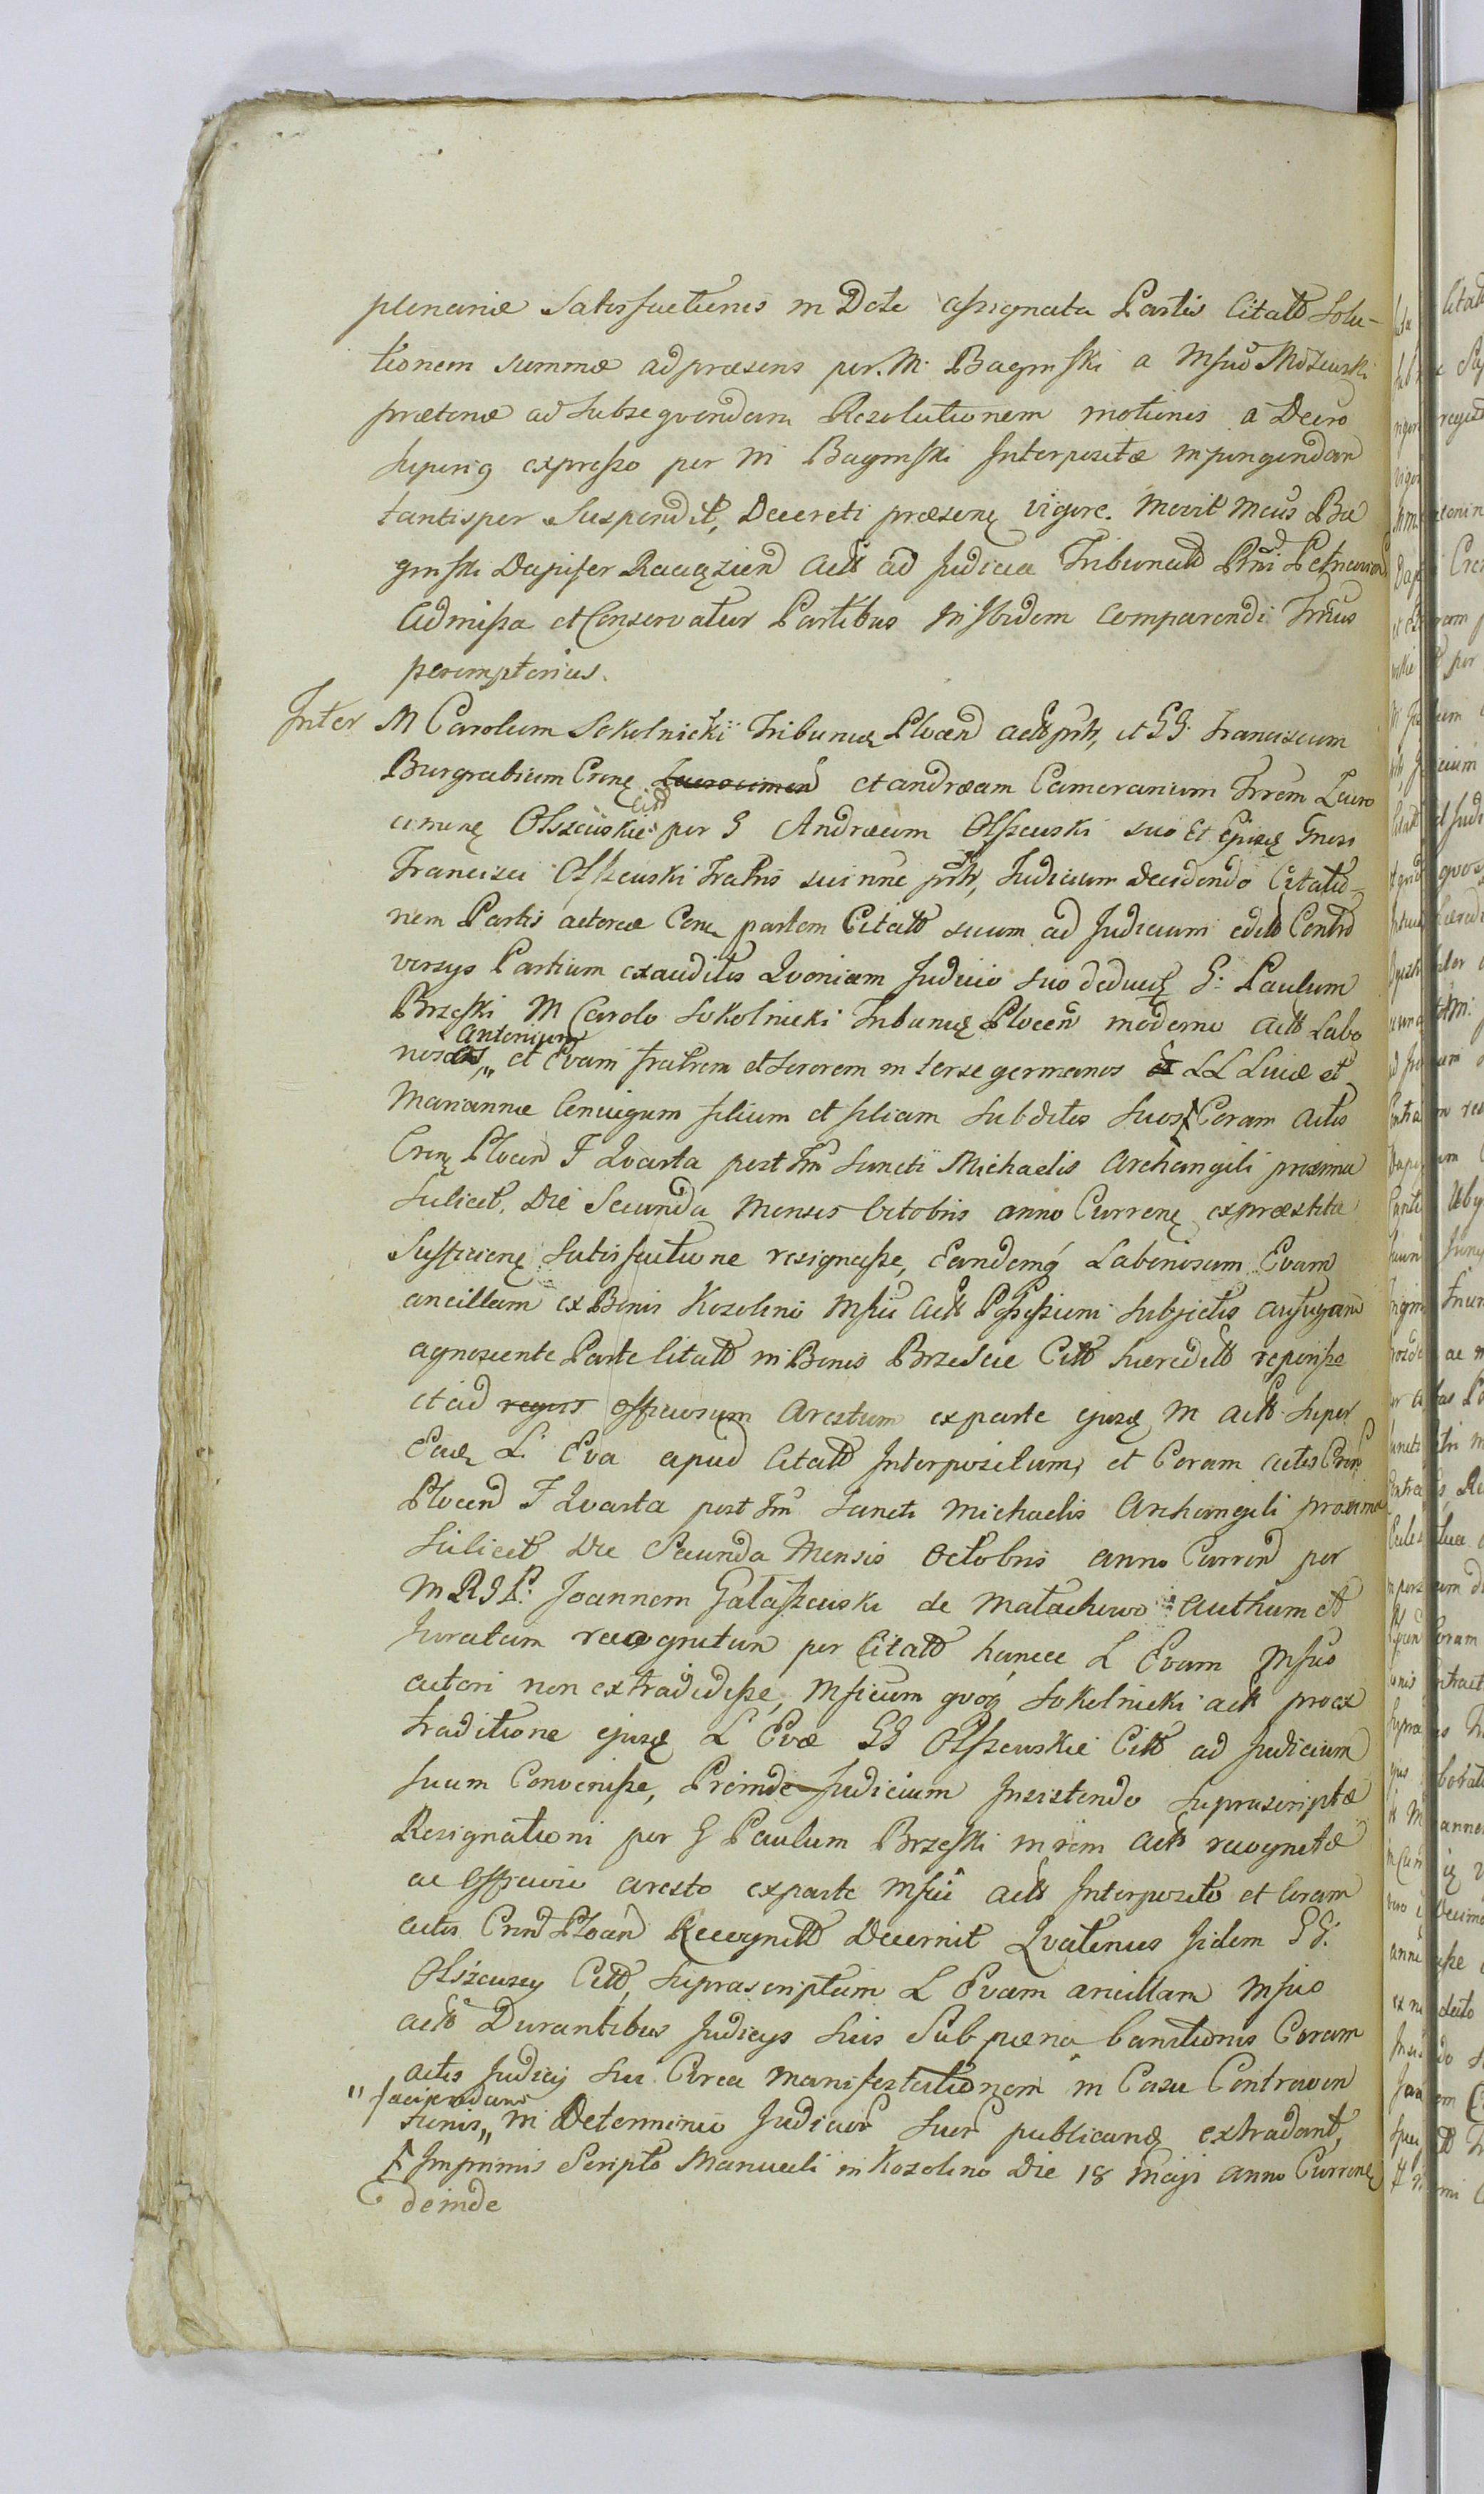 plenariæ Satisfactionis in Dote assignata Partis Citatt Solu-
tionem summæ ad præsens per M. Baginski a Msuo
prætensæ ad Subsequendam Resolutionem motionis a Decro
Superius expresso per M Baginski Interpositæ impingendam
tantisper Suspendit, Decreti præsenę vigore. Movit Mcus Ba
ginski Dapifer Raciązien Actt ad Judicia Tribunatt
Admissa et Conservatur Partibus Inibidem Comparendi Trnus
peremptorius.
Inter M Carolum Sokolnicki Tribunuę Plocen actt prtt, et GG. Franciscum
Burgrabium Crnę et Andræam Camerarium Trrem Zawo
cimenę Olszewskie Citt per G Andræam Olszewski suo Et Ejusę Gnosi
Francisci Olszewski Fratris sui nne prtt, Judicium Decidendo Citatio-
nem Partis actoreæ Conę partem Citatt suum ad Judicium editt Contro
versys Partium exauditis Quoniam Judicio suo deducę G: Paulum
Brzeski M Carolo Sokolnicki Tribunuę Plocen moderno Actt Labo
Antonium
riosos,, et Evam fratrem et Sororem inter se germanos LL Lucæ et
Mariannæ Conjugum filium et filiam Subditos Suos ⨍ Coram Actis
Crnę Plocen F Quarta post Fm Sancti Michaelis Archangeli proxima
Scilicet Die Secunda Mensis Octobris anno Currenę expræstita
Sufficienę Satisfactione resignasse, Eandemq Laboriosam Evam
ancillam ex Bonis Kozolino Msui Actt Possessioni Subjectis aufugam
agnoscente Parte Citatt in Bonis Brzescie Citt hæreditt reperisse
et ad officiosum Arestum exparte ejusę M Actt Super
Eadę L. Eva apud Citatt Interpositum, et Coram actis Crn
Plocen F Quarta post Fm Sancti Michaelis Archangeli proxima
Scilicet Die Secunda Mensis Octobris anno Curren per
M R G P. Joannem Gałaszewski de Małachowo Authum et
Juratum recognitum per Citatt hancce L Evam Msuo
actori non extradidisse, Msicum quoq Sokolnicki actt pro ex
traditione ejusę L Evæ GG Olszewskie Citt ad Judicium
suum Convenisse, Proinde Judicium Insistendo Suprascriptæ
Resignationi per G Paulum Brzeski in rem Actt recognitæ
ac Officioso aresto exparte Msui actt Interposito et Coram
actis Crn Plocen Recognitt Decernit Quatenus Iidem GG.
Olszewscy Citt, Suprascriptam L Evam ancillam Msuo
actt Durantibus Judicys Suis Sub pæna banitionis Coram
actis Judicy Sui Circa manifestationem in Casu Contraven
" faciendam
tionis,, in Determinio Judicior Suor publicanę extradant,
⨍ Imprimis Scripto Manuali in Kozolino Die 18 Maji anno Currenę
deinde